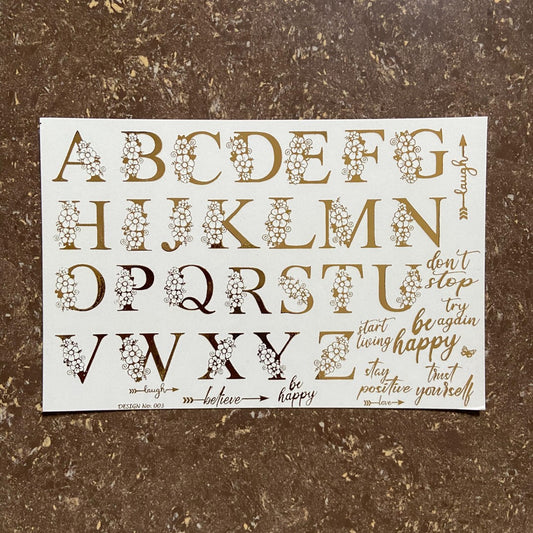 A B C D E F G
laugh
H I J K L M N
O P Q R S T U
don't
stop
try
again
start
living
be
happy
V W X Y Z
stay
positive
trust
yourself
laugh
believe
be
happy
love
DESIGN No: 003